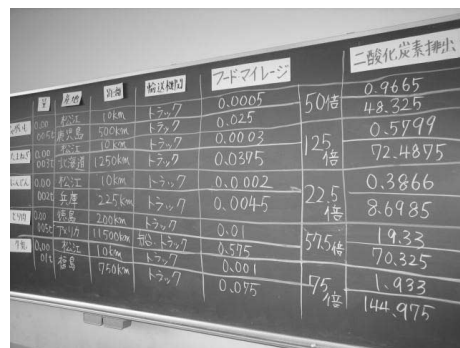 量 産地 距離 輸送機関 フードマイレージ 二酸化炭素排出
0.00 松江 10km トラック 0.0005 50倍 0.9665
鹿児島 500km トラック 0.025 48.325
たまねぎ 0.00 松江 10km トラック 0.0003 125倍 0.5799
003t 北海道 1250km トラック 0.0375 72.4875
0.00 松江 10km トラック 0.0002 22.5倍 0.3866
002t 兵庫 225km トラック 0.0045 8.6985
0.00 徳島 200km トラック 0.01 57.5倍 19.33
005t アメリカ 11500km 船・トラック 0.575 70.325
0.00 松江 10km トラック 0.001 75倍 1.933
01t 福島 750km トラック 0.075 144.975